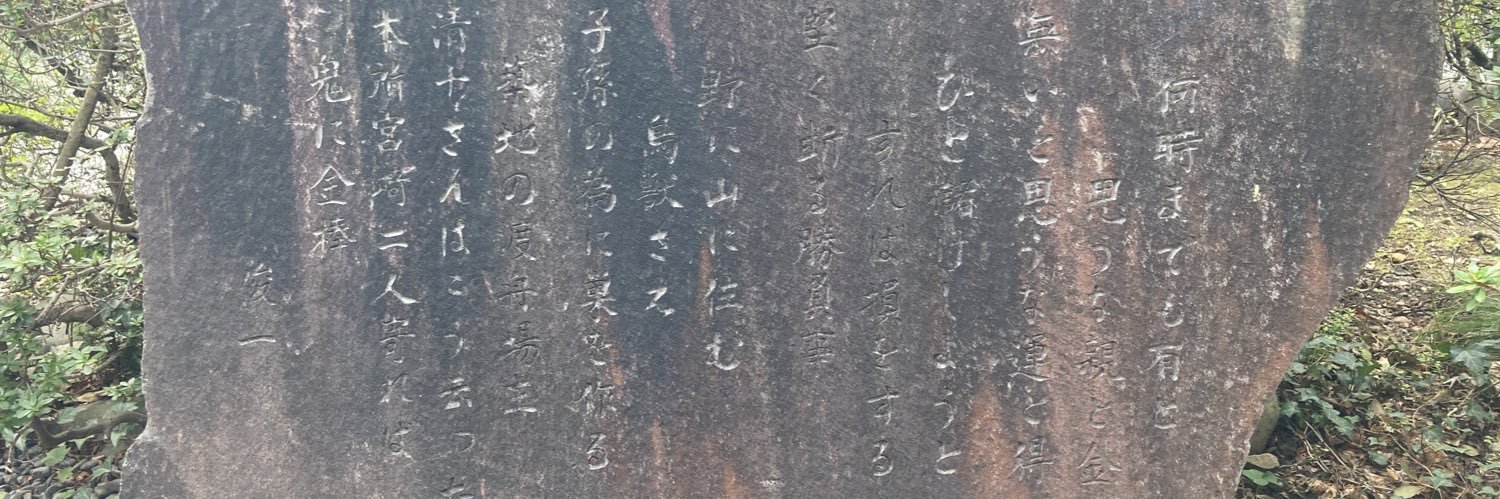 何時までも有と
思うな親と金
無いと思うな運と得
ひと儲けしようと
すれば損をする
堅く断る勝負事
野に山に住む
鳥獣さえ
子孫の為に巣を作る
築地の渡舟場主
清十さんはこう云った
本所宮崎二人寄れば
鬼に金棒
俊一